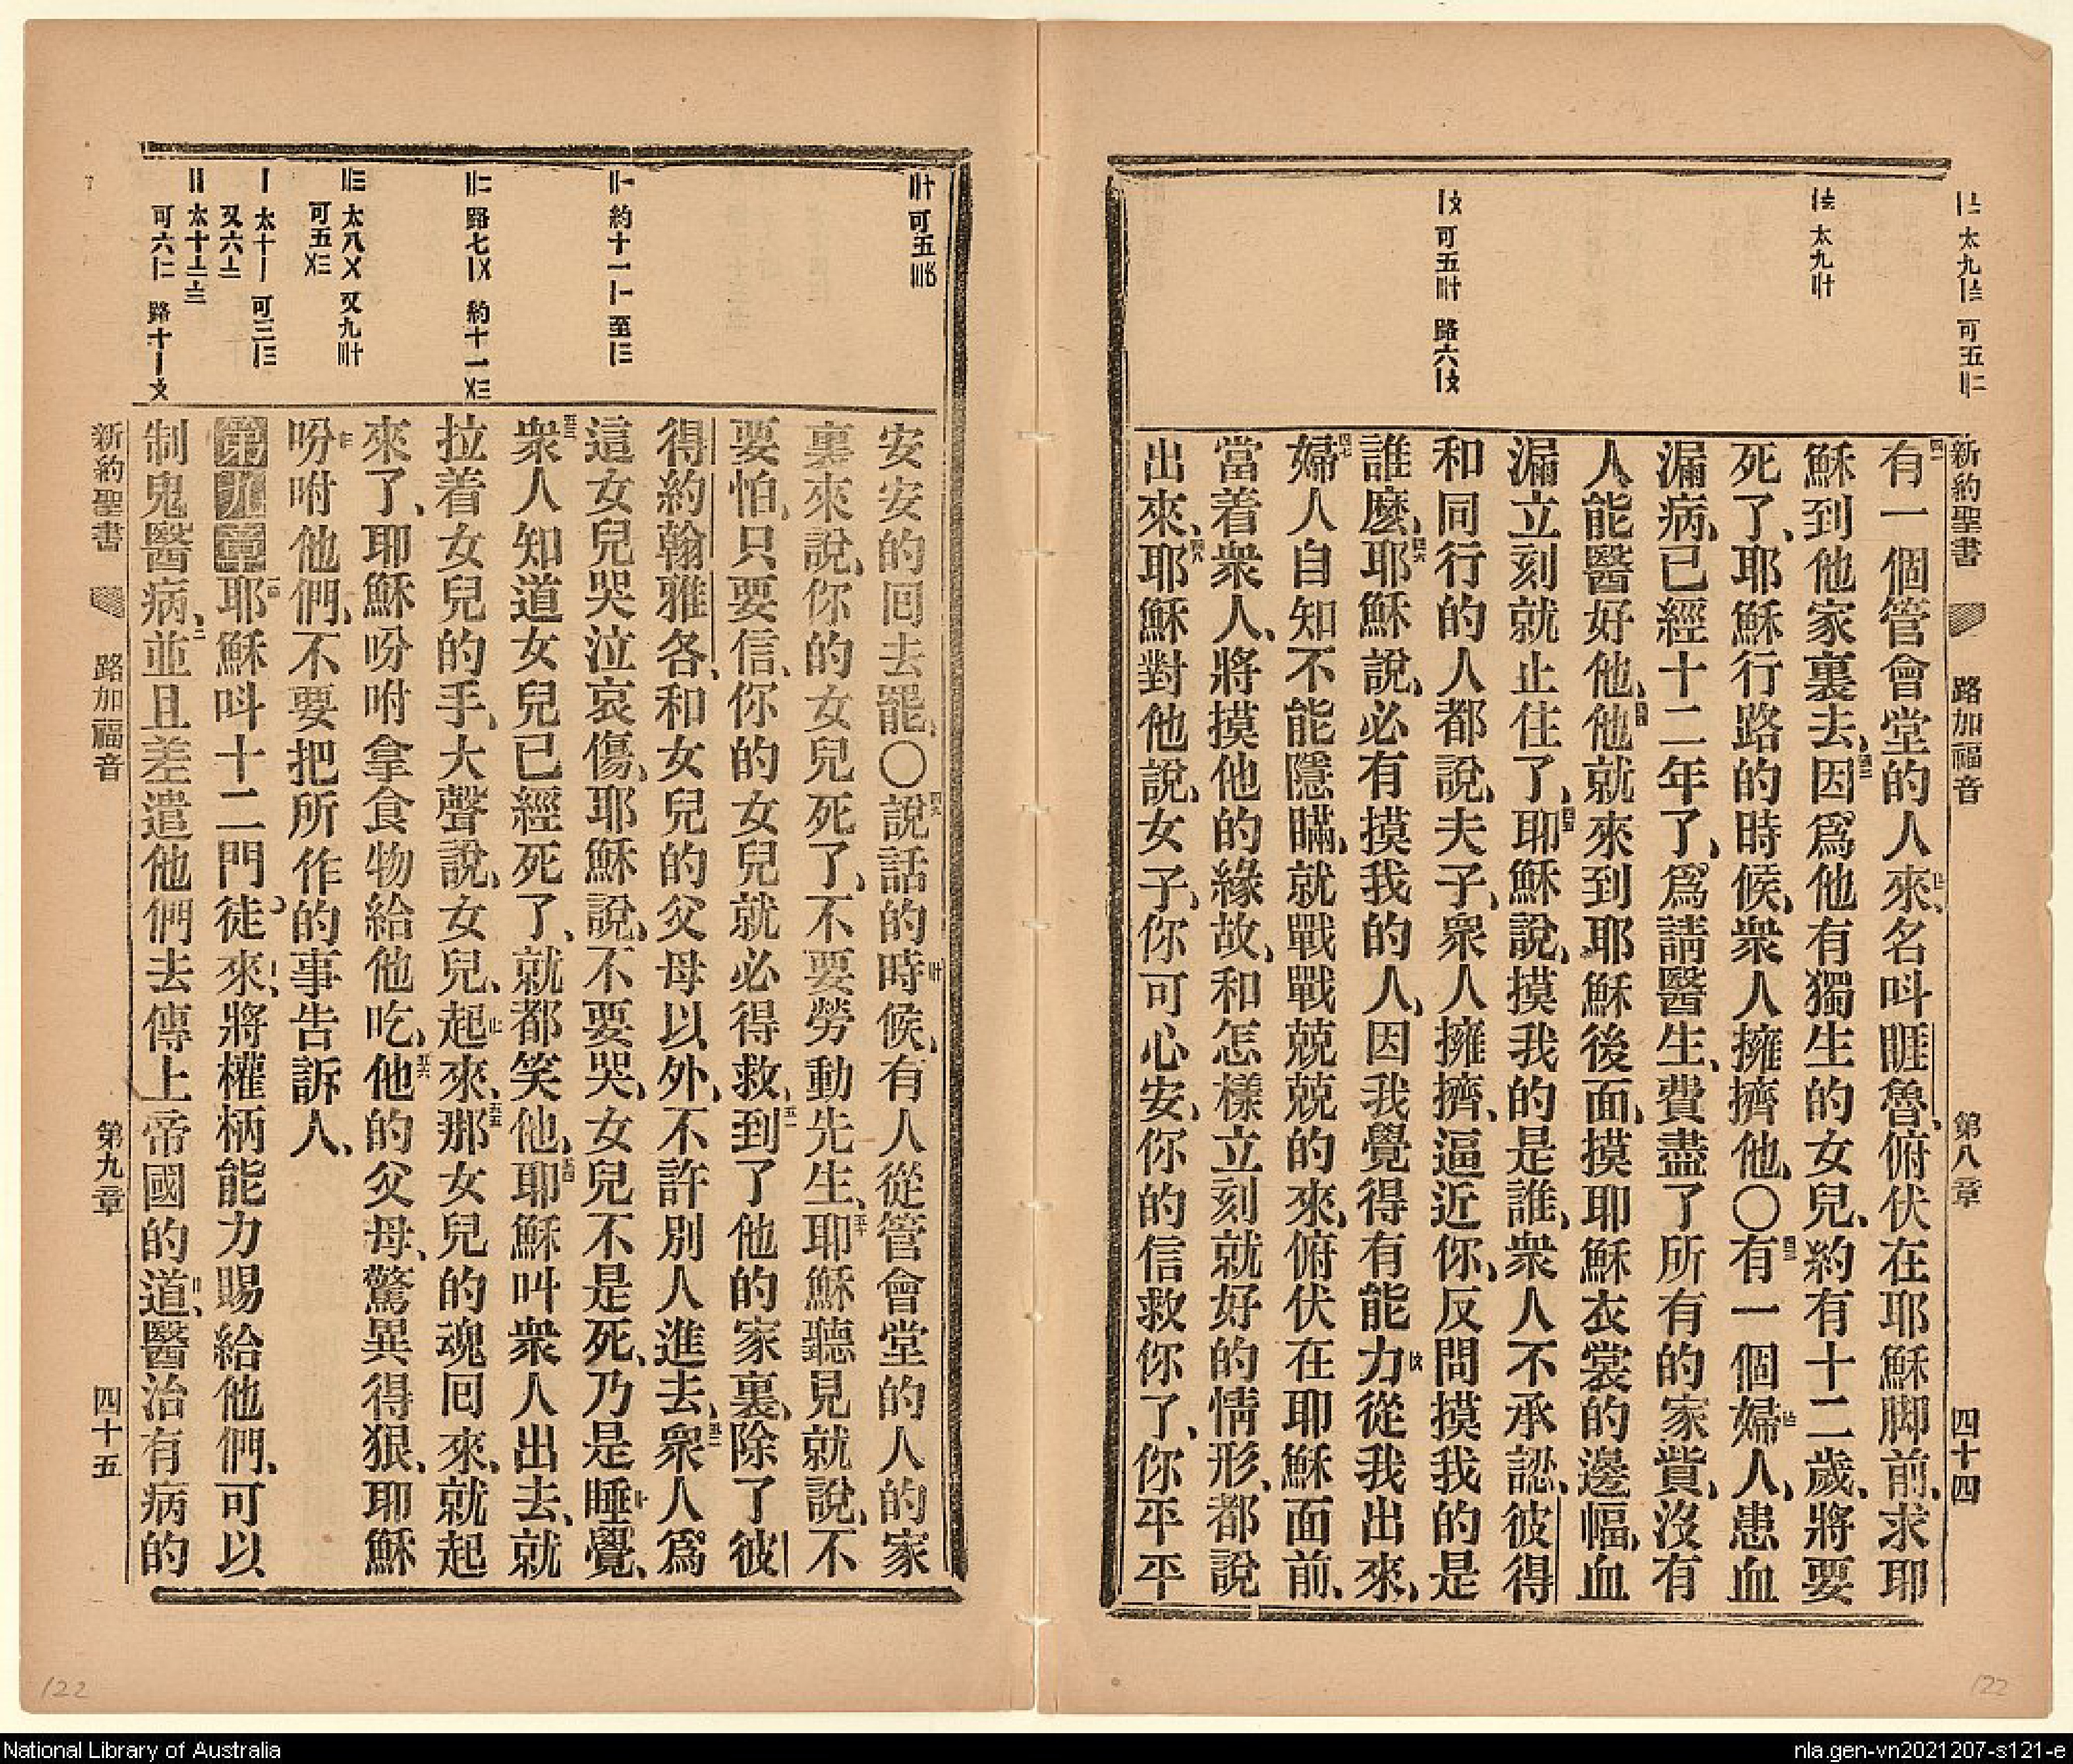 新約聖書 路加福音 第八章 四十四
有一個管會堂的人來、名呌睚魯、俯伏在耶穌脚前、求耶
穌到他家裏去、因爲他有獨生的女兒、約有十二歲、將要
死了、耶穌行路的時候、衆人擁擠他、〇有一個婦人、患血
漏病、已經十二年了、爲請醫生、費盡了所有的家貲、沒有
人能醫好他、他就來到耶穌後面、摸耶穌衣裳的邊幅、血
漏立刻就止住了、耶穌說、摸我的是誰、衆人不承認、彼得
和同行的人都說、夫子、衆人擁擠、逼近你、反問摸我的是
誰麼、耶穌說、必有摸我的人、因我覺得有能力從我出來、
婦人自知不能隱瞞、就戰戰兢兢的來、俯伏在耶穌面前、
當着衆人、將摸他的緣故、和怎樣立刻就好的情形、都說
出來、耶穌對他說、女子、你可心安、你的信救你了、你平平
安安的囘去罷、〇說話的時候、有人從管會堂的人的家
裏來說、你的女兒死了、不要勞動先生、耶穌聽見就說、不
要怕、只要信、你的女兒就必得救、到了他的家裏、除了彼
得約翰雅各、和女兒的父母以外、不許別人進去、衆人爲
這女兒哭泣哀傷、耶穌說、不要哭、女兒不是死、乃是睡覺、
衆人知道女兒已經死了、就都笑他、耶穌叫衆人出去、就
拉着女兒的手、大聲說、女兒、起來、那女兒的魂囘來、就起
來了、耶穌吩咐拿食物給他吃、他的父母、驚異得狠、耶穌
吩咐他們、不要把所作的事告訴人、
第九章 耶穌呌十二門徒來、將權柄能力賜給他們、可以
制鬼醫病、並且差遣他們去傳上帝國的道、醫治有病的
新約聖書 路加福音 第九章 四十五
122
122
National Library of Australia
nla.gen-vn2021207-s121-e